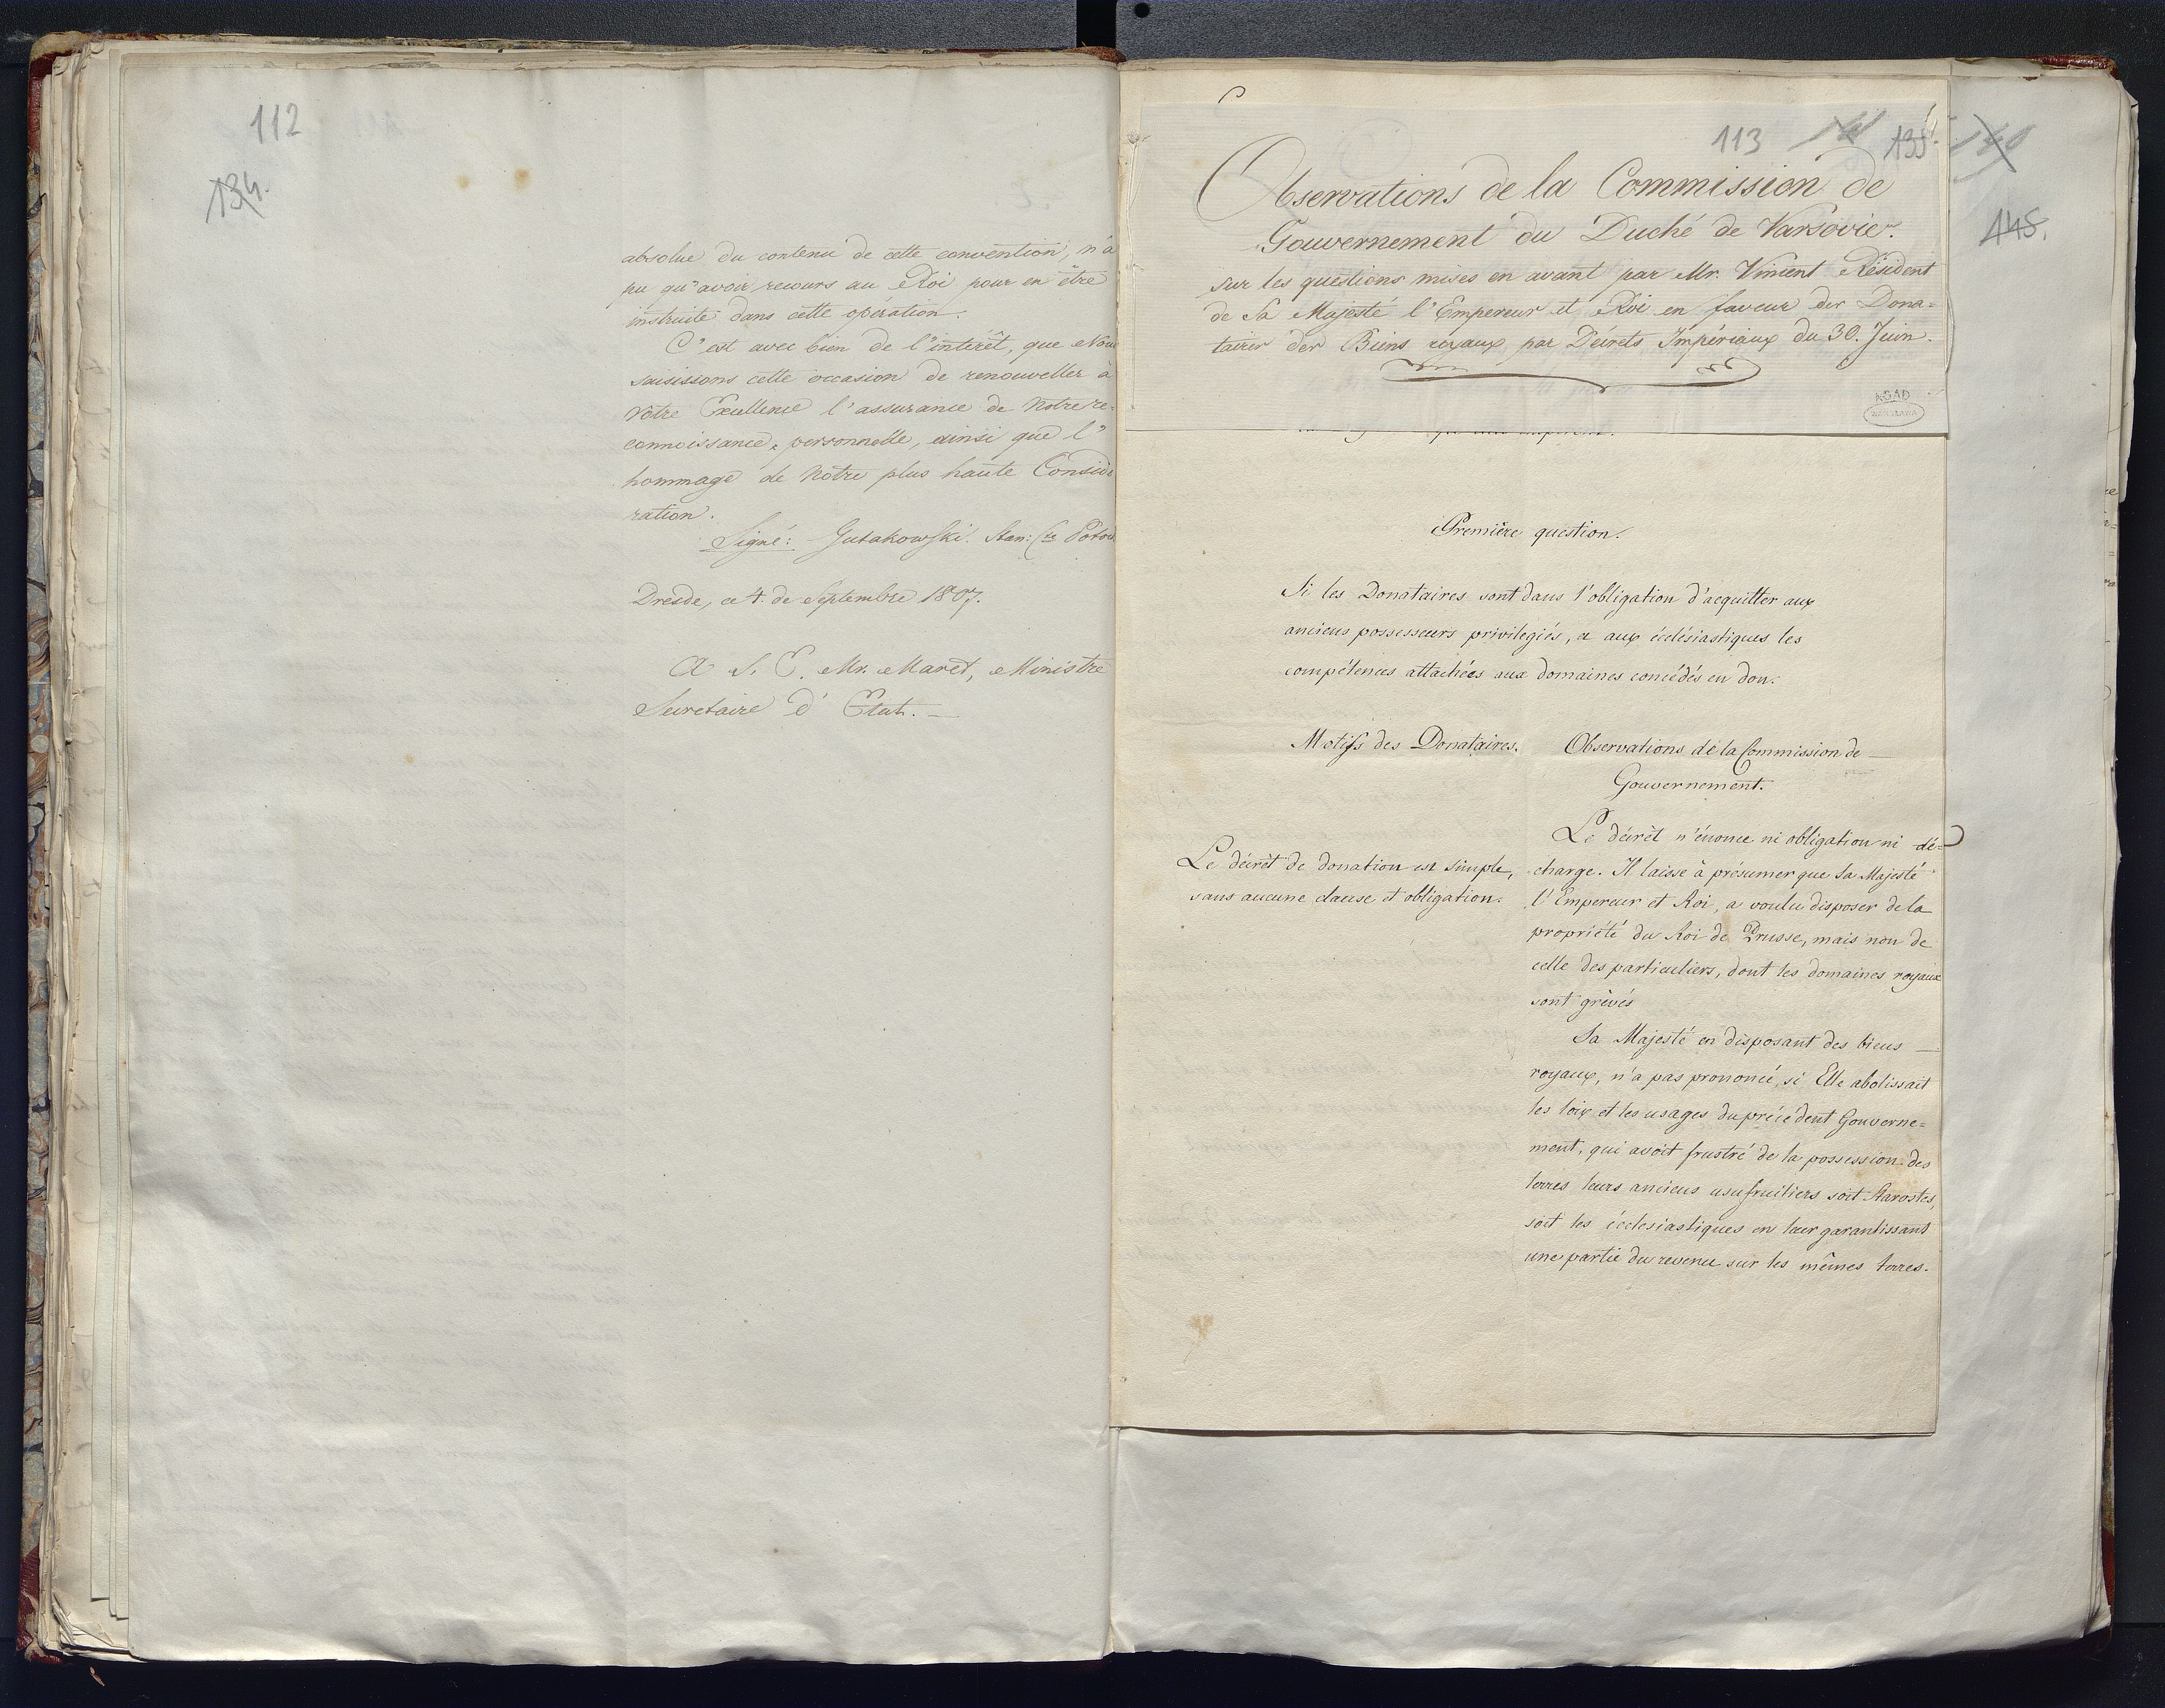 112
134.
absolue du contenu de cette convention, n'a
pu qu'avoir recours au Roi pour en être
instruite dans cette opération.
C'est avec bien de l'intérêt, que Nous
saisissons cette occasion de renouveller à
Votre Excellence l'assurance de Notre re-
connoissance personnelle, ainsi que l'
hommage de Notre plus haute Considé
ration.
Signé: Gutakowski. Stan: Cte Potoc
Dresde, ce 4. de Septembre 1807.
A S. E. Mr. Maret, Ministre
Secretaire d'Etat. —
113 135.
145.
Observations de la Commission de
Gouvernement du Duché de Varsovie.
sur les questions mises en avant par Mr. Vincent Résident
de Sa Majesté l'Empereur et Roi en faveur des Dona=
taires des Biens royaux par Décrets Impériaux du 30. Juin.
AGAD
WARSZAWA
Première question.
Si les Donataires sont dans l'obligation d'acquitter aux
anciens possesseurs privilegiés, et aux écclésiastiques les
compétences attachées aux domaines concédés en don.
Motifs des Donataires.
Le décrèt de donation est simple,
sans aucune clause et obligation.
Observations de la Commission de —
Gouvernement.
Le décrèt n'énonce ni obligation ni dé=
charge. Il laisse à présumer que Sa Majesté
l'Empereur et Roi, a voulu disposer de la
propriété du Roi de Prusse, mais non de
celle des particuliers, dont les domaines royaux
sont grèvés
Sa Majesté en disposant des biens —
royaux, n'a pas prononcé, si Elle abolissait
les loix et les usages du précédent Gouverne=
ment, qui avoit frustré de la possession des
terres leurs anciens usufruitiers soit Starostes,
soit les écclesiastiques en leur garantissant
une partie du revenu sur les mêmes terres.